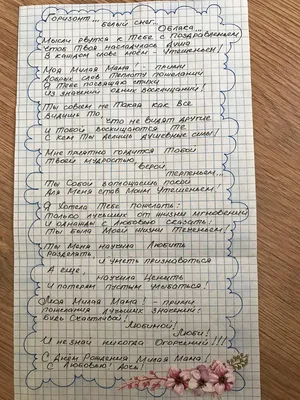 Горизонт... Белый снег... Облака...
Мысли рвутся к Тебе с Поздравленьем
Чтоб Твоя насладилась Душа
В каждом слове моём - Утешеньем!
Моя Милая Мама! - прими
Добрых слов Теплоту пожеланий
Я Тебе посвящаю стихи
Из значений одних восклицаний!
Ты совсем не Такая как Все
Видишь То,
что не видят другие
И Тобой восхищаются те
С кем Ты делишь душевные силы!
Мне приятно гордится Тобой
Твоей мудростью,
Верой,
терпеньем...
Ты Собой воплощаешь покой
Для Меня став Моим Утешеньем!
Я Хотела Тебе пожелать:
Только лучших от жизни мгновений
И однажды с Любовью сказать:
Ты была Моей Жизни
Ты Меня научила Любить
Разделять,
и уметь признаваться
А ещё,
научила Ценить
И потерям пустым Улыбаться!
Моя Милая Мама! - прими
Пожелания лучших значений:
Будь Счастливой!
Любимой!
Люби!
И не знай никогда Огорчений!!!
С Днём Рождения Милая Мама!
С Любовью!